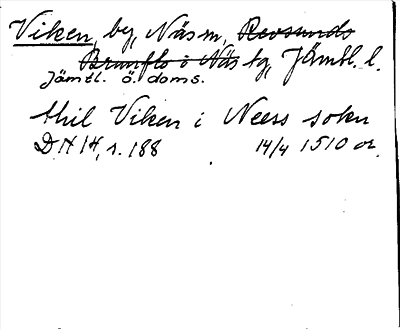 Viken, by, Näs sn, Revsunds
Brunflo o Näs tg, Jämtl. l.
Jämtl. ö. doms.
thil Viken i Neess sokn
DN 14, s. 188 14/4 1510 or.